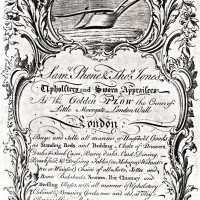 Sam. Phene & Tho. Jones
Upholsters and Sworn Appraisers
At the Golden PLOW the Corner of
Little Moorgate, London Wall
London
Buys and Sells all manner of Household Goods
as Standing Beds and Bedding, Chests of Drawers,
Desks & Book Cases, Buroy Desks, Card, Dining,
& Dressing Tables of Mahogany Wallnutt
or Chairs of all sorts, Settes and
Sconces, Pier Chimney and
Dressing Glasses, with all manner of Upholstery
Cabinet & Braziery Goods, new and old, at very